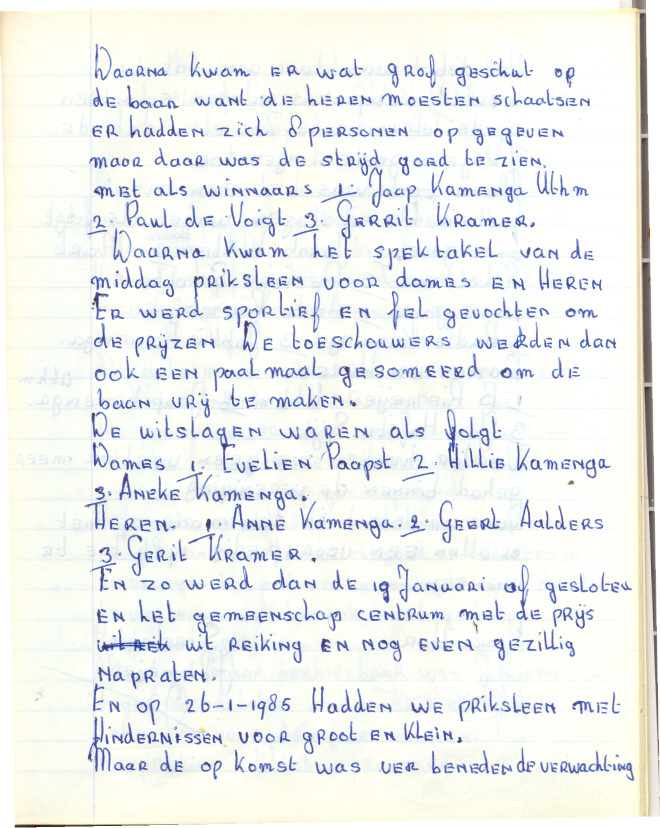 Daarna kwam er wat grof geschut op
de baan want de heren moesten schaatsen
er hadden zich 8 personen op gegeven
maar daar was de strijd goed te zien.
met als winnaars 1. Jaap Kamenga Uthm
2. Paul de Voigt 3. Gerrit Kramer.
Daarna kwam het spektakel van de
middag priksleen voor dames en Heren
Er werd sportief en fel gevochten om
de prijzen De toeschouwers werden dan
ook een paal maal gesomeerd om de
baan vrij te maken.
De uitslagen waren als folgt
Dames 1. Evelien Paapst 2. Hillie Kamenga
3. Aneke Kamenga.
Heren. 1. Anne Kamenga 2. Geert Aalders
3. Gerit Kramer.
En zo werd dan de 19 Januari af gesloten
en het gemeenschap centrum met de prijs
uit reiking en nog even gezillig
na praten.
En op 26-1-1985 Hadden we priksleen met
Hindernissen voor groot en klein.
Maar de op komst was ver beneden de verwachting